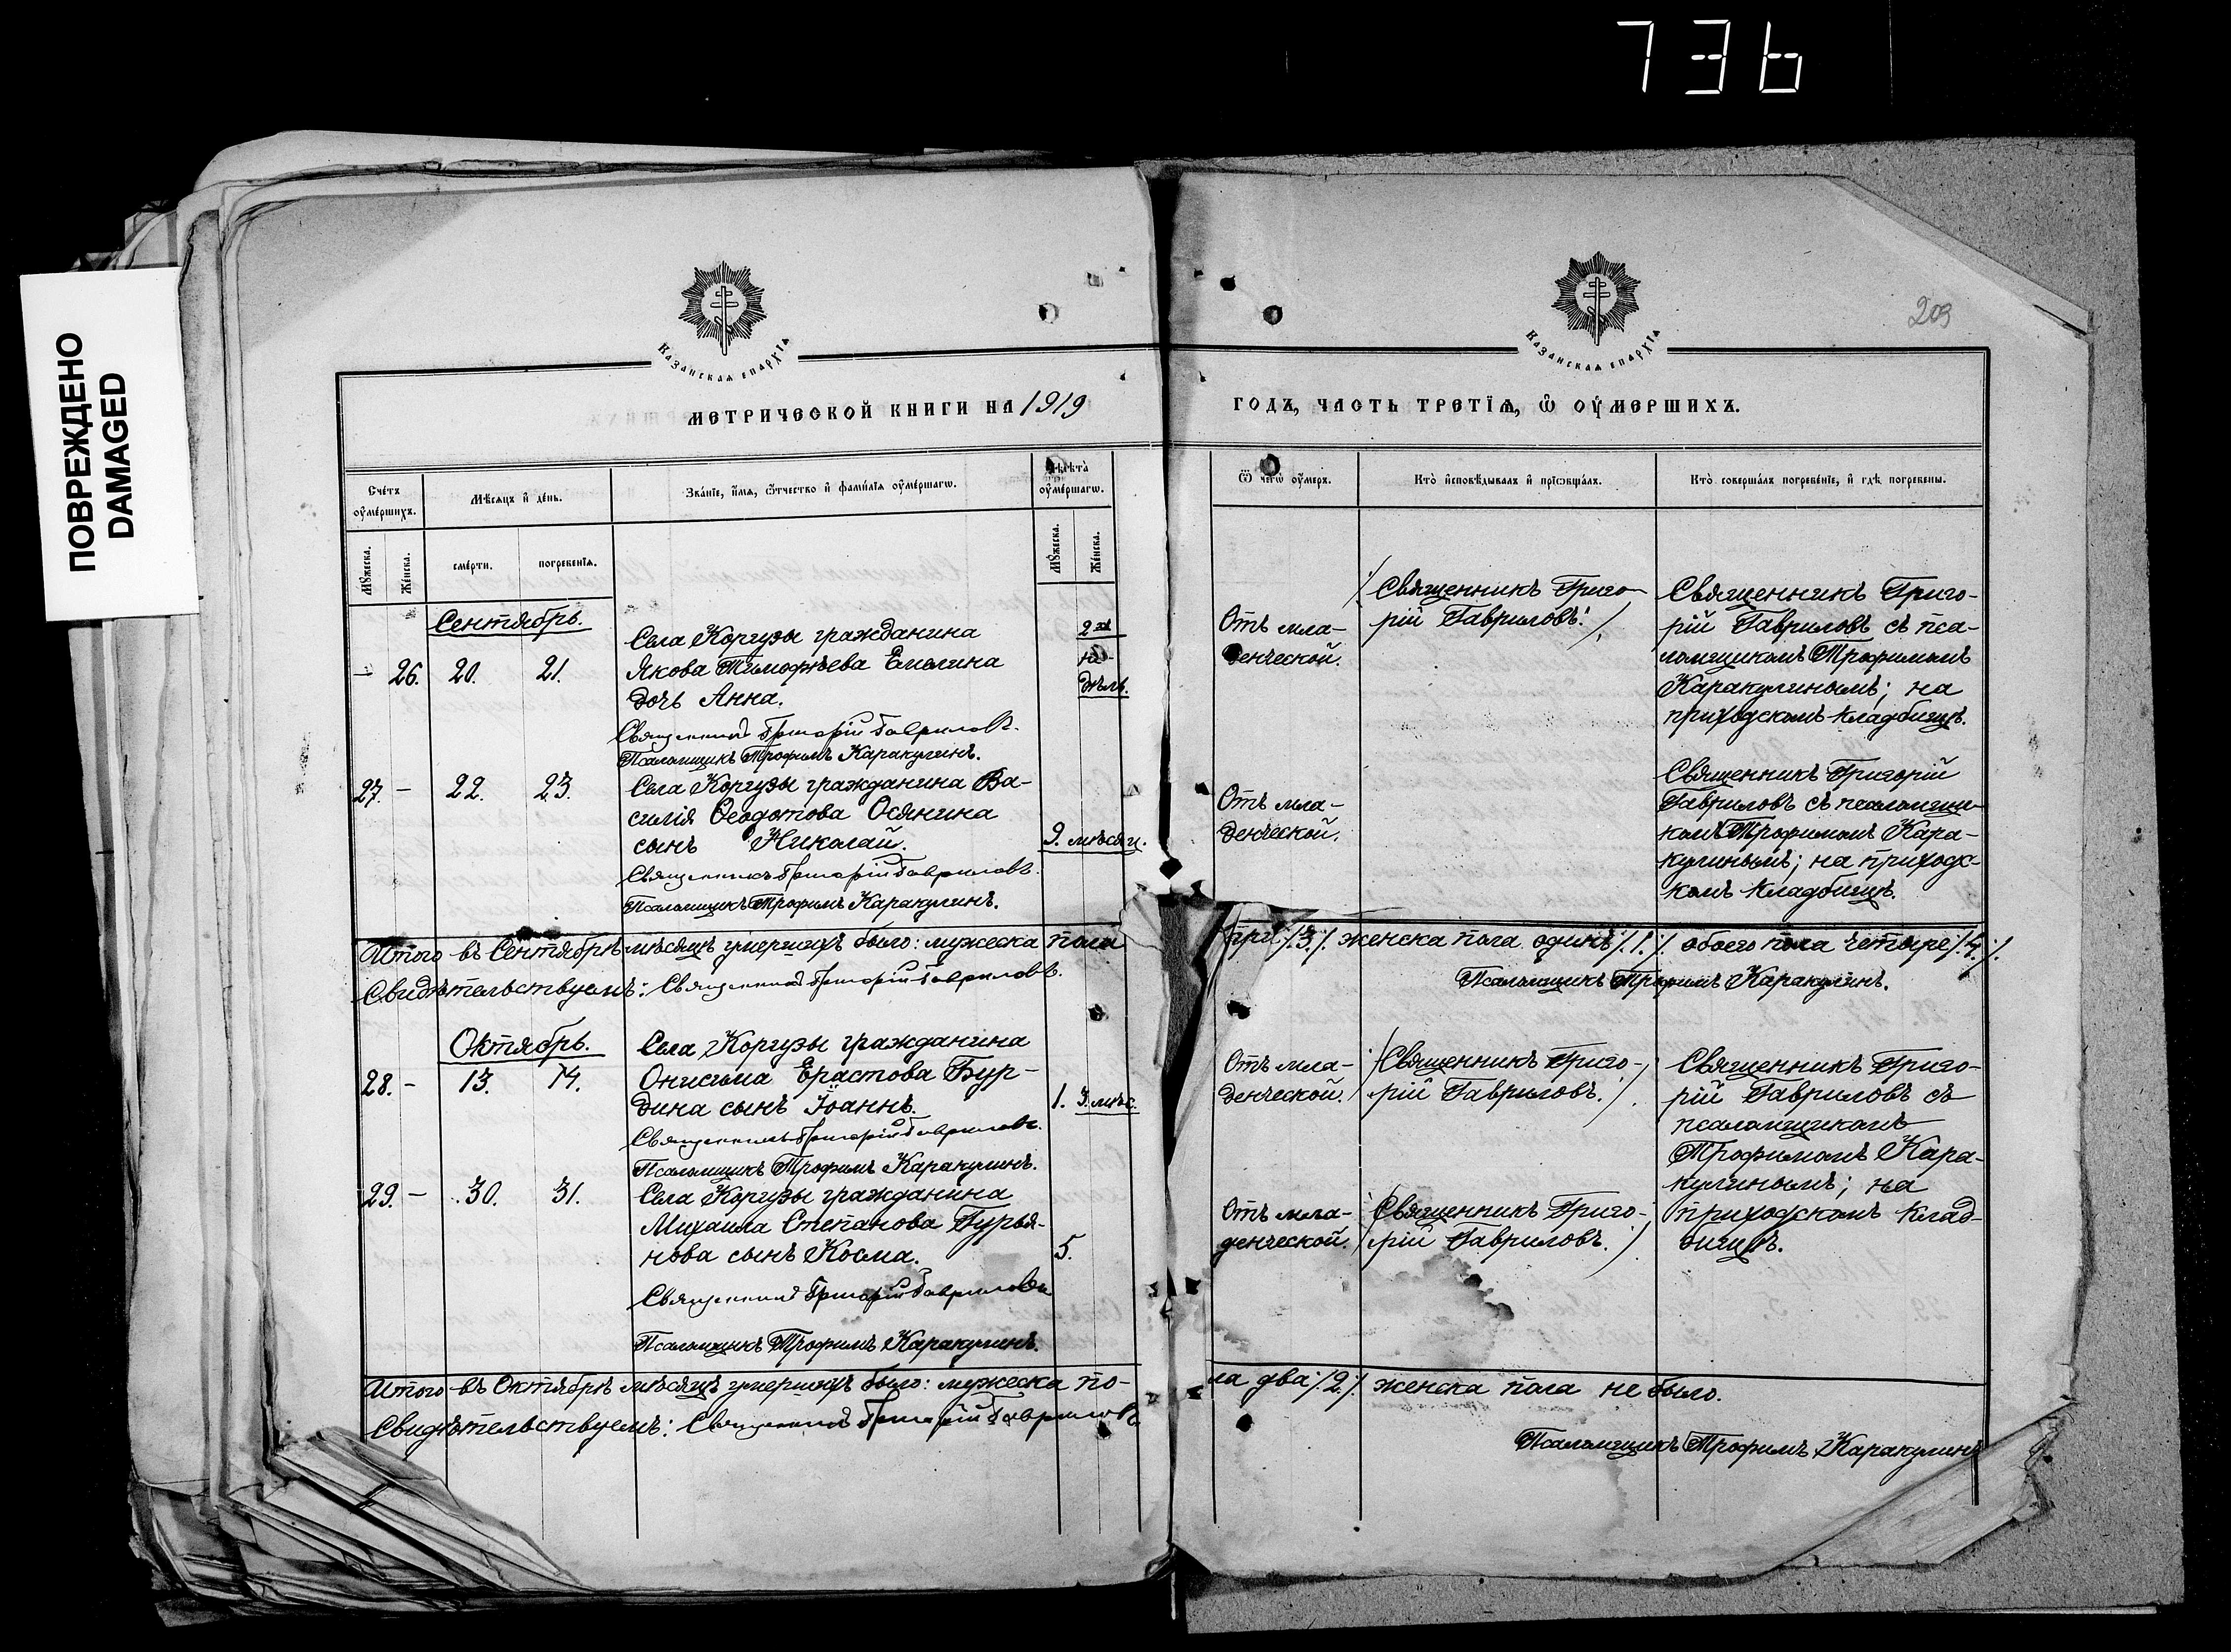 736
ПОВРЕЖДЕНО
DAMAGED
209
КАЗАНСКАѦ ЕПАРХІѦ
КАЗАНСКАѦ ЕПАРХІѦ
МЕТРИЧЕСКОЙ КНИГИ НА 1919
ГОДЪ, ЧАСТЬ ТРЕТІѦ, Ѿ ОУМЕРШИХЪ.
Счетъ
оумершихъ.
Мѣсѧцъ и день.
Званіе, имѧ, ѿчество и фамиліѧ оумершагѡ.
Лѣта
оумершагѡ.
Мꙋжеска.
Женска.
смерти.
погребеніѧ.
Мꙋжеска.
Женска.
Ѿ чегѡ оумеръ.
Кто исповѣдывалъ и пріѡбщалъ.
Кто совершалъ погребеніе, и гдѣ погребены.
Сентябрь.
– 26. 20. 21.
Села Коргузы гражданина
Якова Тимофѣева Емелина
дочь Анна.
Священникъ Григорій Гавриловъ.
Псаломщикъ Трофимъ Каракулинъ.
2хъ
не-
дѣль.
Отъ мла-
денческой.
/Священникъ Григо-
рій Гавриловъ./
Священникъ Григо-
рій Гавриловъ съ пса-
ломщикомъ Трофимомъ
Каракулинымъ; на
приходскомъ кладбищѣ.
27. – 22. 23.
Села Коргузы гражданина Ва-
силія Ѳеодотова Осянина
сынъ Николай.
Священникъ Григорій Гавриловъ.
Псаломщикъ Трофимъ Каракулинъ.
9. мѣсяц.
Отъ мла-
денческой.
Священникъ Григорій
Гавриловъ съ псаломщи-
комъ Трофимомъ Кара-
кулинымъ; на приходс-
комъ кладбищѣ.
Итого въ Сентябрѣ мѣсяцѣ умершихъ было: мужеска пола три /.3./. женска пола одинъ /.1./. обоего пола четыре /.4./.
Свидѣтельствуемъ: Священникъ Григорій Гавриловъ. Псаломщикъ Трофимъ Каракулинъ.
Октябрь.
28. – 13. 14.
Села Коргузы гражданина
Онисима Ерастова Бур-
дина сынъ Іоаннъ.
Священникъ Григорій Гавриловъ.
Псаломщикъ Трофимъ Каракулинъ.
1. 3. мѣс.
Отъ мла-
денческой.
/Священникъ Григо-
рій Гавриловъ./
Священникъ Григо-
рій Гавриловъ съ
псаломщикомъ
Трофимомъ Кара-
кулинымъ; на
приходскомъ клад-
бищѣ.
29. – 30. 31.
Села Коргузы гражданина
Михаила Степанова Гурья-
нова сынъ Косма.
Священникъ Григорій Гавриловъ
Псаломщикъ Трофимъ Каракулинъ.
5.
Отъ мла-
денческой.
/Священникъ Григо-
рій Гавриловъ./
Итого въ Октябрѣ мѣсяцѣ умершихъ было: мужеска по-
ла два /.2./. женска пола не было.
Свидѣтельствуемъ: Священникъ Григорій Гавриловъ
Псаломщикъ Трофимъ Каракулинъ